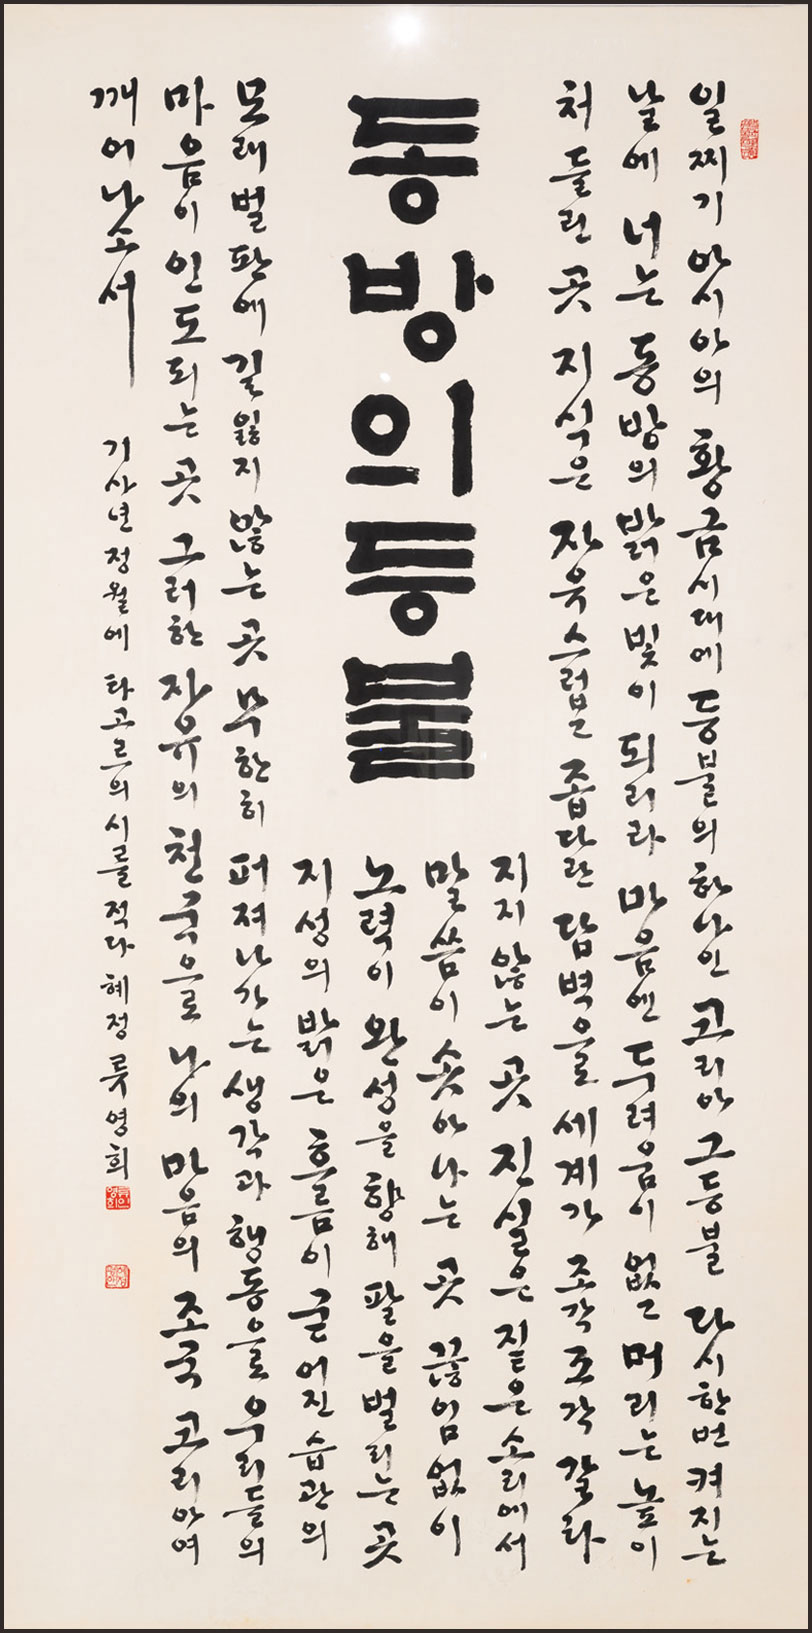 동방의등불
일찌기 아시아의 황금시대에 등불의 하나인 코리아 그 등불 다시 한번 켜지는
날에 너는 동방의 밝은 빛이 되리라 마음엔 두려움이 없고 머리는 높이
처들린 곳 지식은 자유스럽고 좁다란 담벽으로 세계가 조각조각 갈라
지지 않는 곳 진실은 짙은 소리에서
말씀이 솟아나는 곳 끊임없이
노력이 완성을 향해 팔을 벌리는 곳
지성의 밝은 흐름이 굳어진 습관의
모래벌판에 길 잃지 않는 곳 무한히 퍼져나가는 생각과 행동으로 우리들의
마음이 인도되는 곳 그러한 자유의 천국으로 나의 마음의 조국 코리아여
깨어나소서
기사년 정월에 타고르의 시를 적다 혜정 류영희